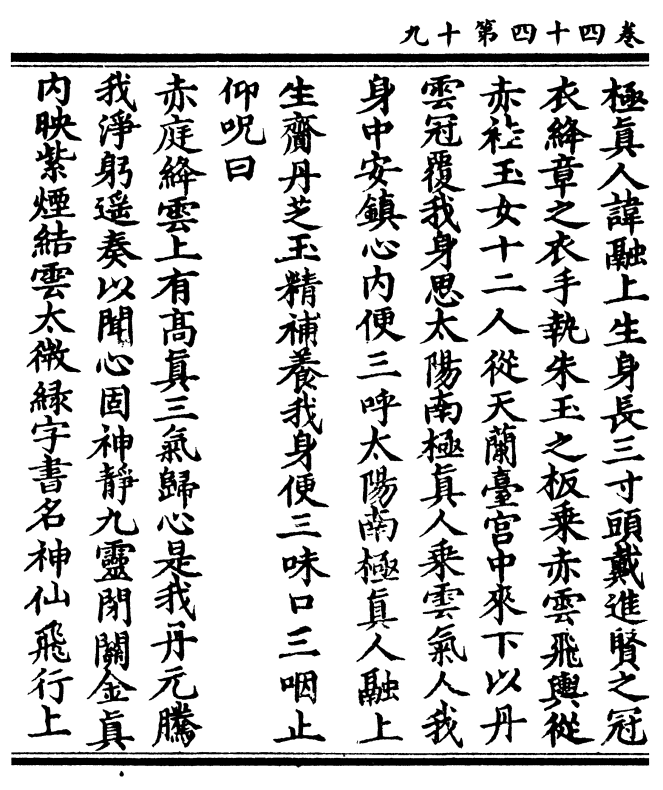 卷四十四第十九
極真人諱融上生身長三寸頭戴進賢之冠
衣絳章之衣手執朱玉之板乘赤雲飛輿從
赤袿玉女十二人從天蘭臺宮中來下以丹
雲冠覆我身思太陽南極真人乘雲氣人我
身中安鎮心內便三呼太陽南極真人融上
生齎丹芝玉精補養我身便三味口三咽止
仰呪曰
赤庭絳雲上有高真三氣歸心是我丹元騰
我淨躬遥奏以聞心固神靜九靈閉關金真
內映紫煙結雲太微緑字書名神仙飛行上